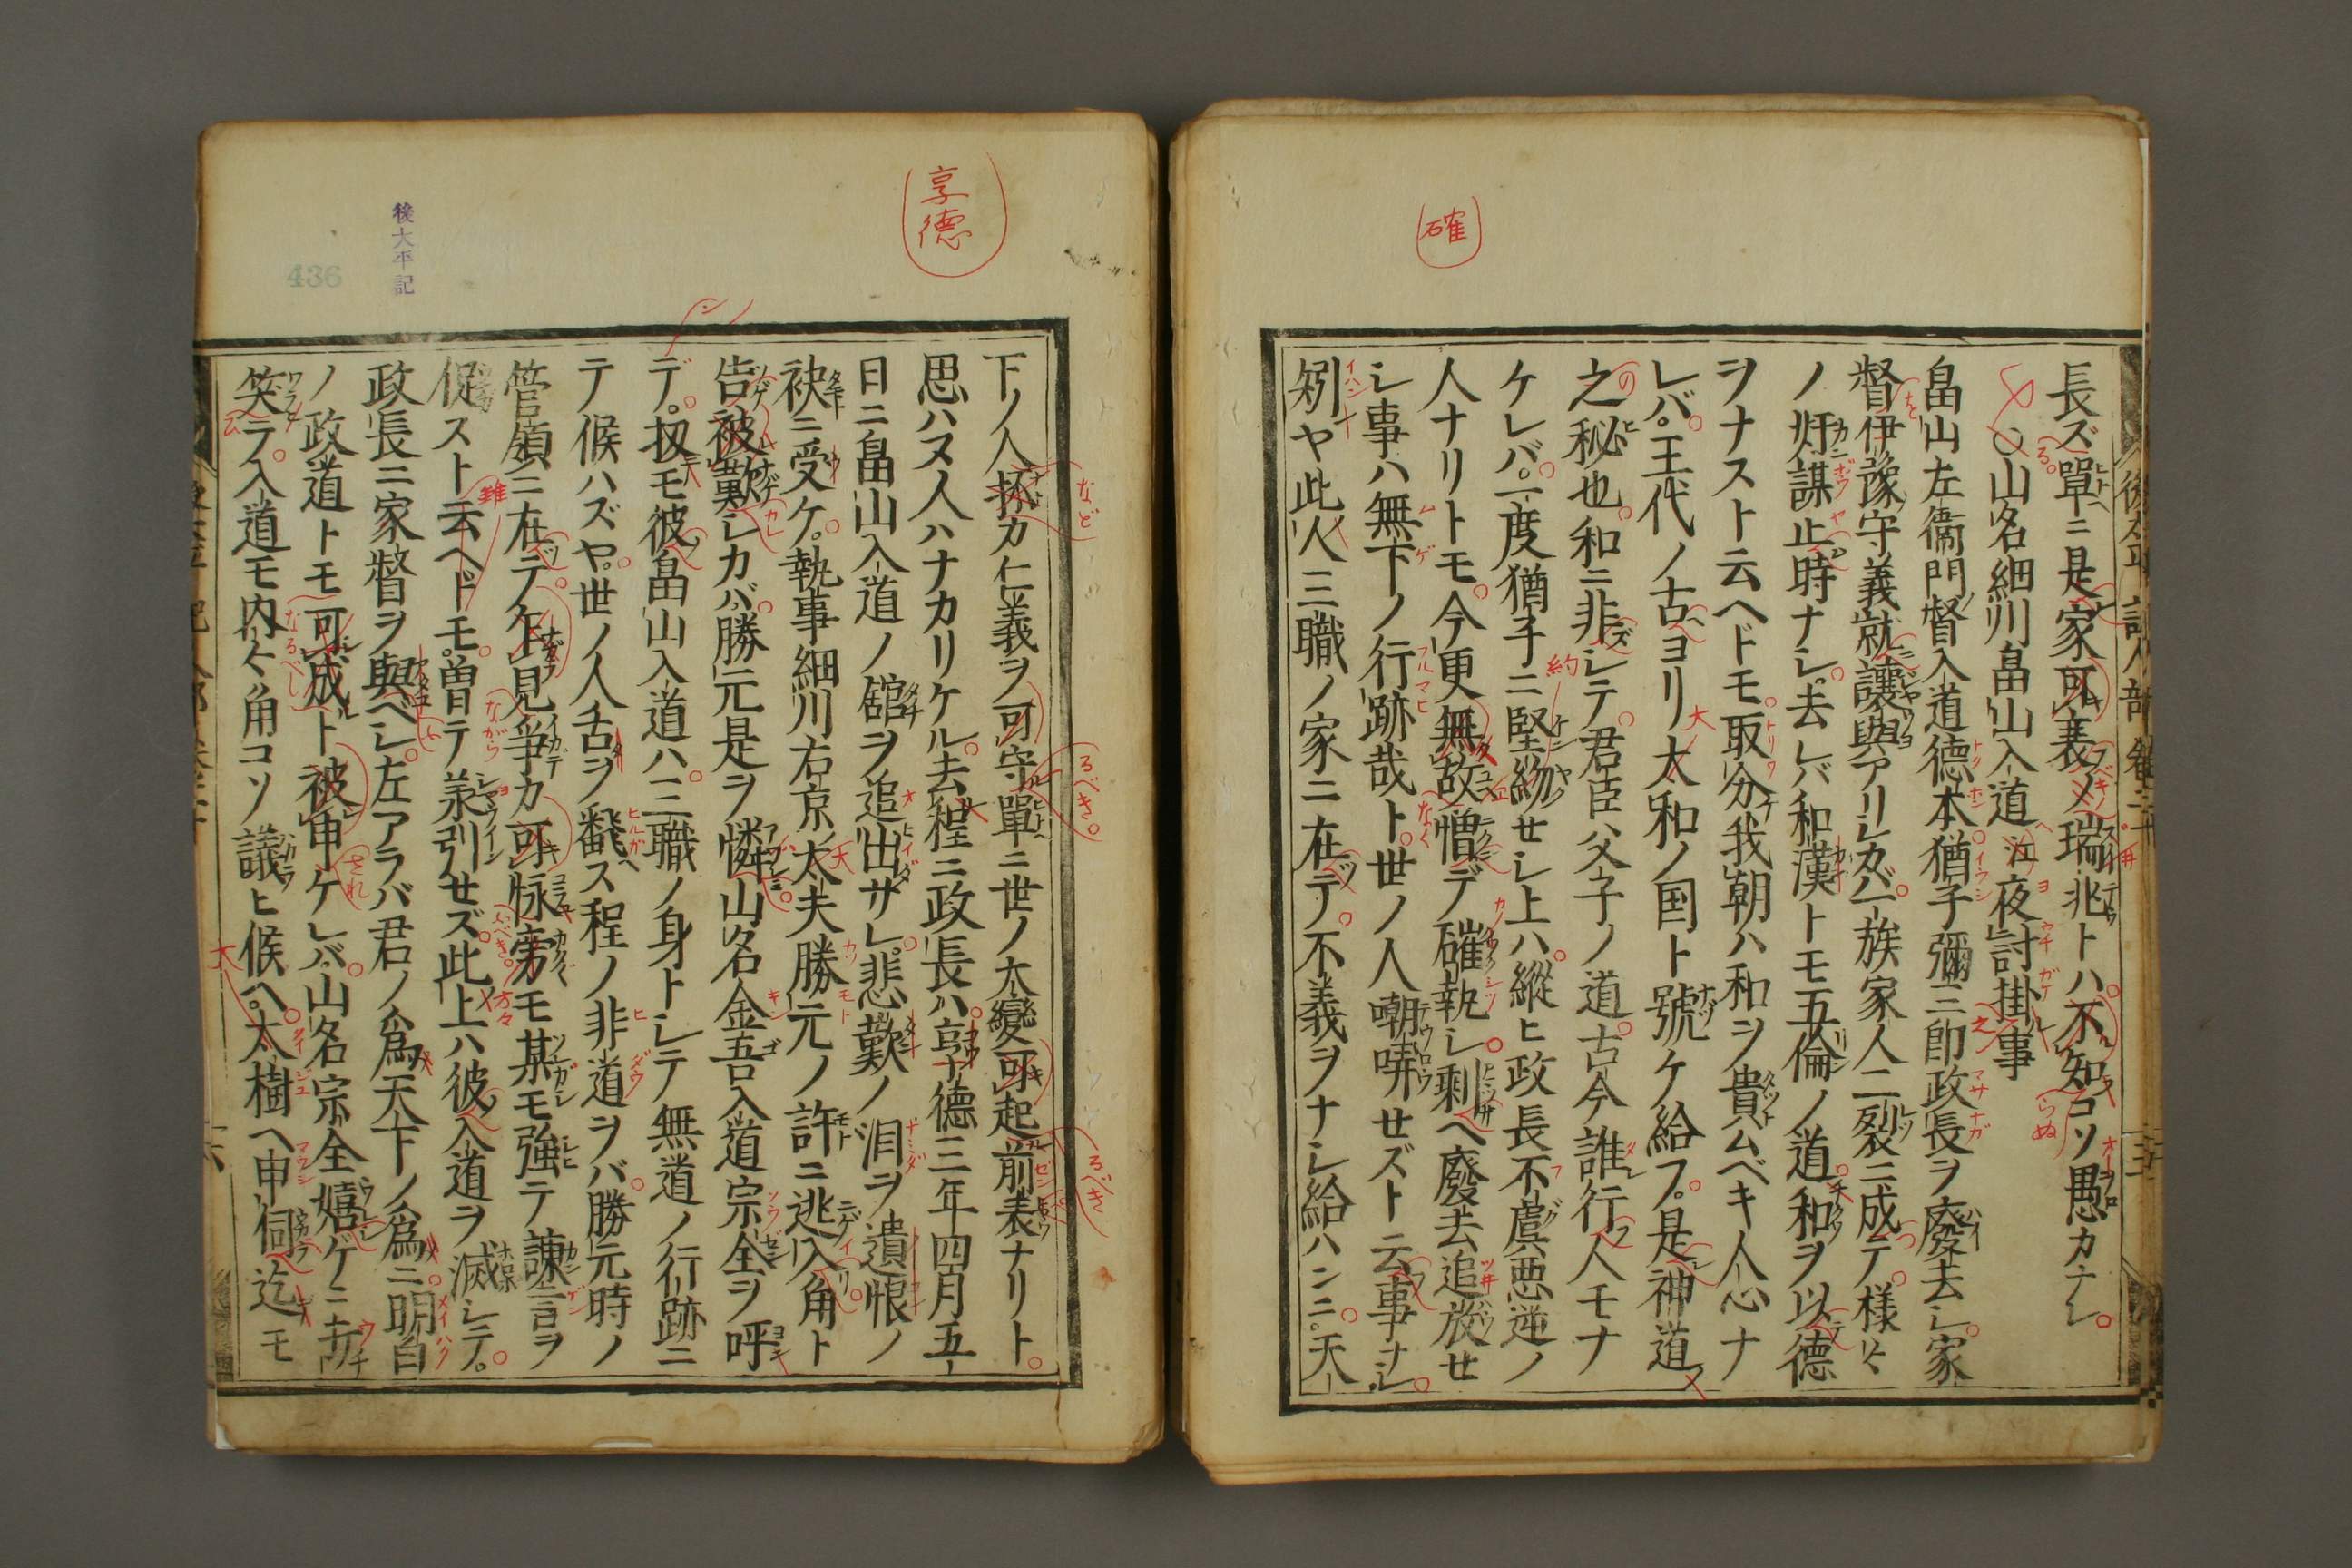 確
長ズ單ニ是家可衰ノ瑞兆トハ不知コソ愚カナレ
○山名細川畠山入道江夜討掛事
畠山左衞門督入道德本猶子彌三郎政長ヲ廢去シ家
督伊豫守義就讓與アリシカバ一族家人二裂ニ成テ樣々
ノ奸謀止時ナシ去レバ和漢トモ五倫ノ道和ヲ以德
ヲナスト云ヘドモ取分我朝ハ和ヲ貴ムベキ人心ナ
レバ王代ノ古ヨリ大和ノ国ト號ケ給フ是神道
之秘也和ニ非シテ君臣父子ノ道古今誰行人モナ
ケレバ一度猶子ニ堅約セシ上ハ縱ヒ政長不虞惡逆ノ
人ナリトモ今更無故憎デ確執シ剩ヘ廢去追放セ
シ事ハ無下ノ行跡哉ト世ノ人嘲哢セズト云事ナシ
矧ヤ此人三職ノ家ニ在テ不義ヲナシ給ハンニ天
享德
後太平記
436
下ノ人抔カ仁義ヲ可守單ニ世ノ大變可起前表ナリト
思ハヌ人ハナカリケル去程ニ政長ハ享德三年四月五
日ニ畠山入道ノ舘ヲ追出サレ悲歎ノ泪ヲ遺恨ノ
袂ニ受ケ執事細川右京太夫勝元ノ許ニ逃入角ト
告被歎シカバ勝元是ヲ憐山名金吾入道宗全ヲ呼
デ扨モ彼畠山入道ハ三職ノ身トシテ無道ノ行跡ニ
テ候ハズヤ世ノ人舌ヲ飜ス程ノ非道ヲバ勝元時ノ
管領ニ在テ乍見爭カ可怺旁モ某モ強テ諫言ヲ
促スト云ヘドモ曽テ承引セズ此上ハ彼入道ヲ滅シテ
政長ニ家督ヲ與ベシ左アラバ君ノ爲天下ノ爲ニ明白
ノ政道トモ可成ト被申ケレバ山名宗全嬉ゲニ打
笑テ入道モ内々角コソ議ヒ候ヘ太樹ヘ申伺迄モ